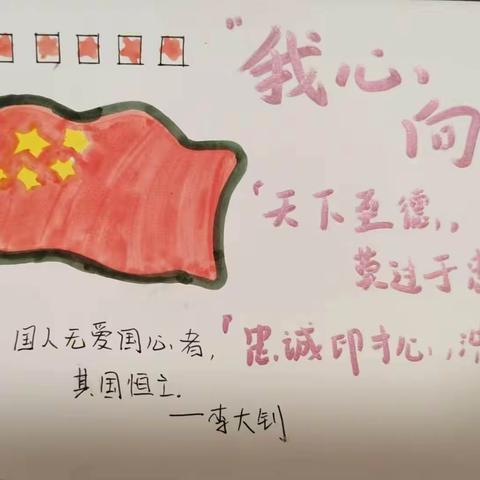 “我心、
向
“天下至德,,
莫过于
“忠诚印寸心,,
国人无爱国心者,
其国恒亡.
——李大钊